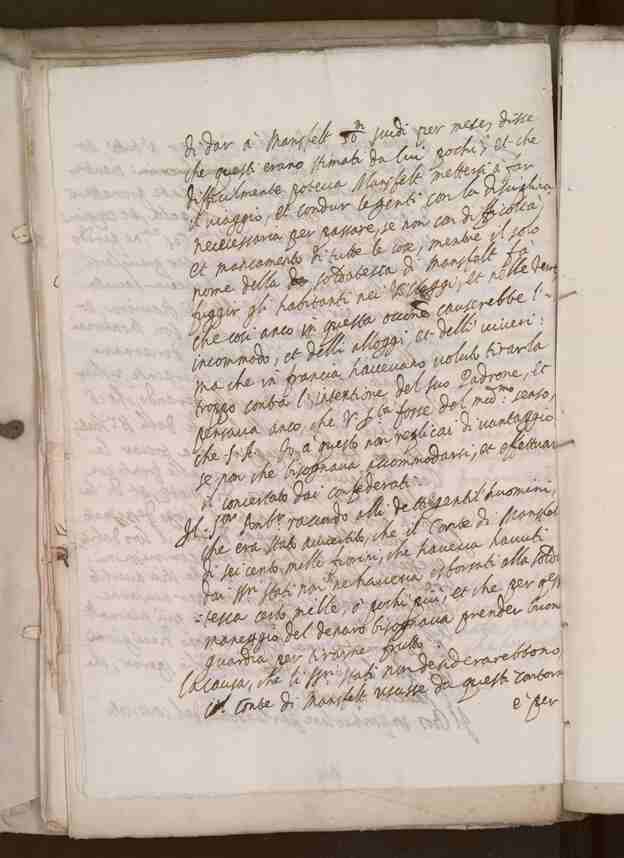 di dar à Mansfelt 50 m scudi per mese, disse
che questi erano stimati da lui pochi, et che
difficilmente poteva Mansfelt mettersi à far
il viaggio, et condur le genti con la
necessaria per passare, se non con difficoltà,
et mancamento di tutte le cose, mentre il solo
nome della soldatesca di Mansfelt fà
fuggir gli habitanti nei Villaggi, et nelle
che così anco in questa occone causerebbe l'-
incommodo, et delli alloggi, et delli viveri:
ma che in francia havevano voluto tirarla
troppo contra l'intentione del suo Padrone, et
pensava anco, che V. S.tà fosse del med.mo senso,
che S. A. Io à questo non replicai di vantaggio
se non che bisognava accommodarsi, et effettuar
il concertato dai confederati.
Il Amb.r raccordò alli detti gentilhuomini,
che era stato avvertito, che il Conte di Mansfelt
di seicento mille fiorini, che haveva havuti
dai ss.ri stati non ne haveva esborsati alla solda
-tesca cento mille ò pochi più, et che per
maneggio del denaro bisognava prender buon
guardia per tirarne frutto.
la causa, che li ss.ri stati non desiderarebbono
il Conte di Mansfelt uscisse da questi contorn
è per